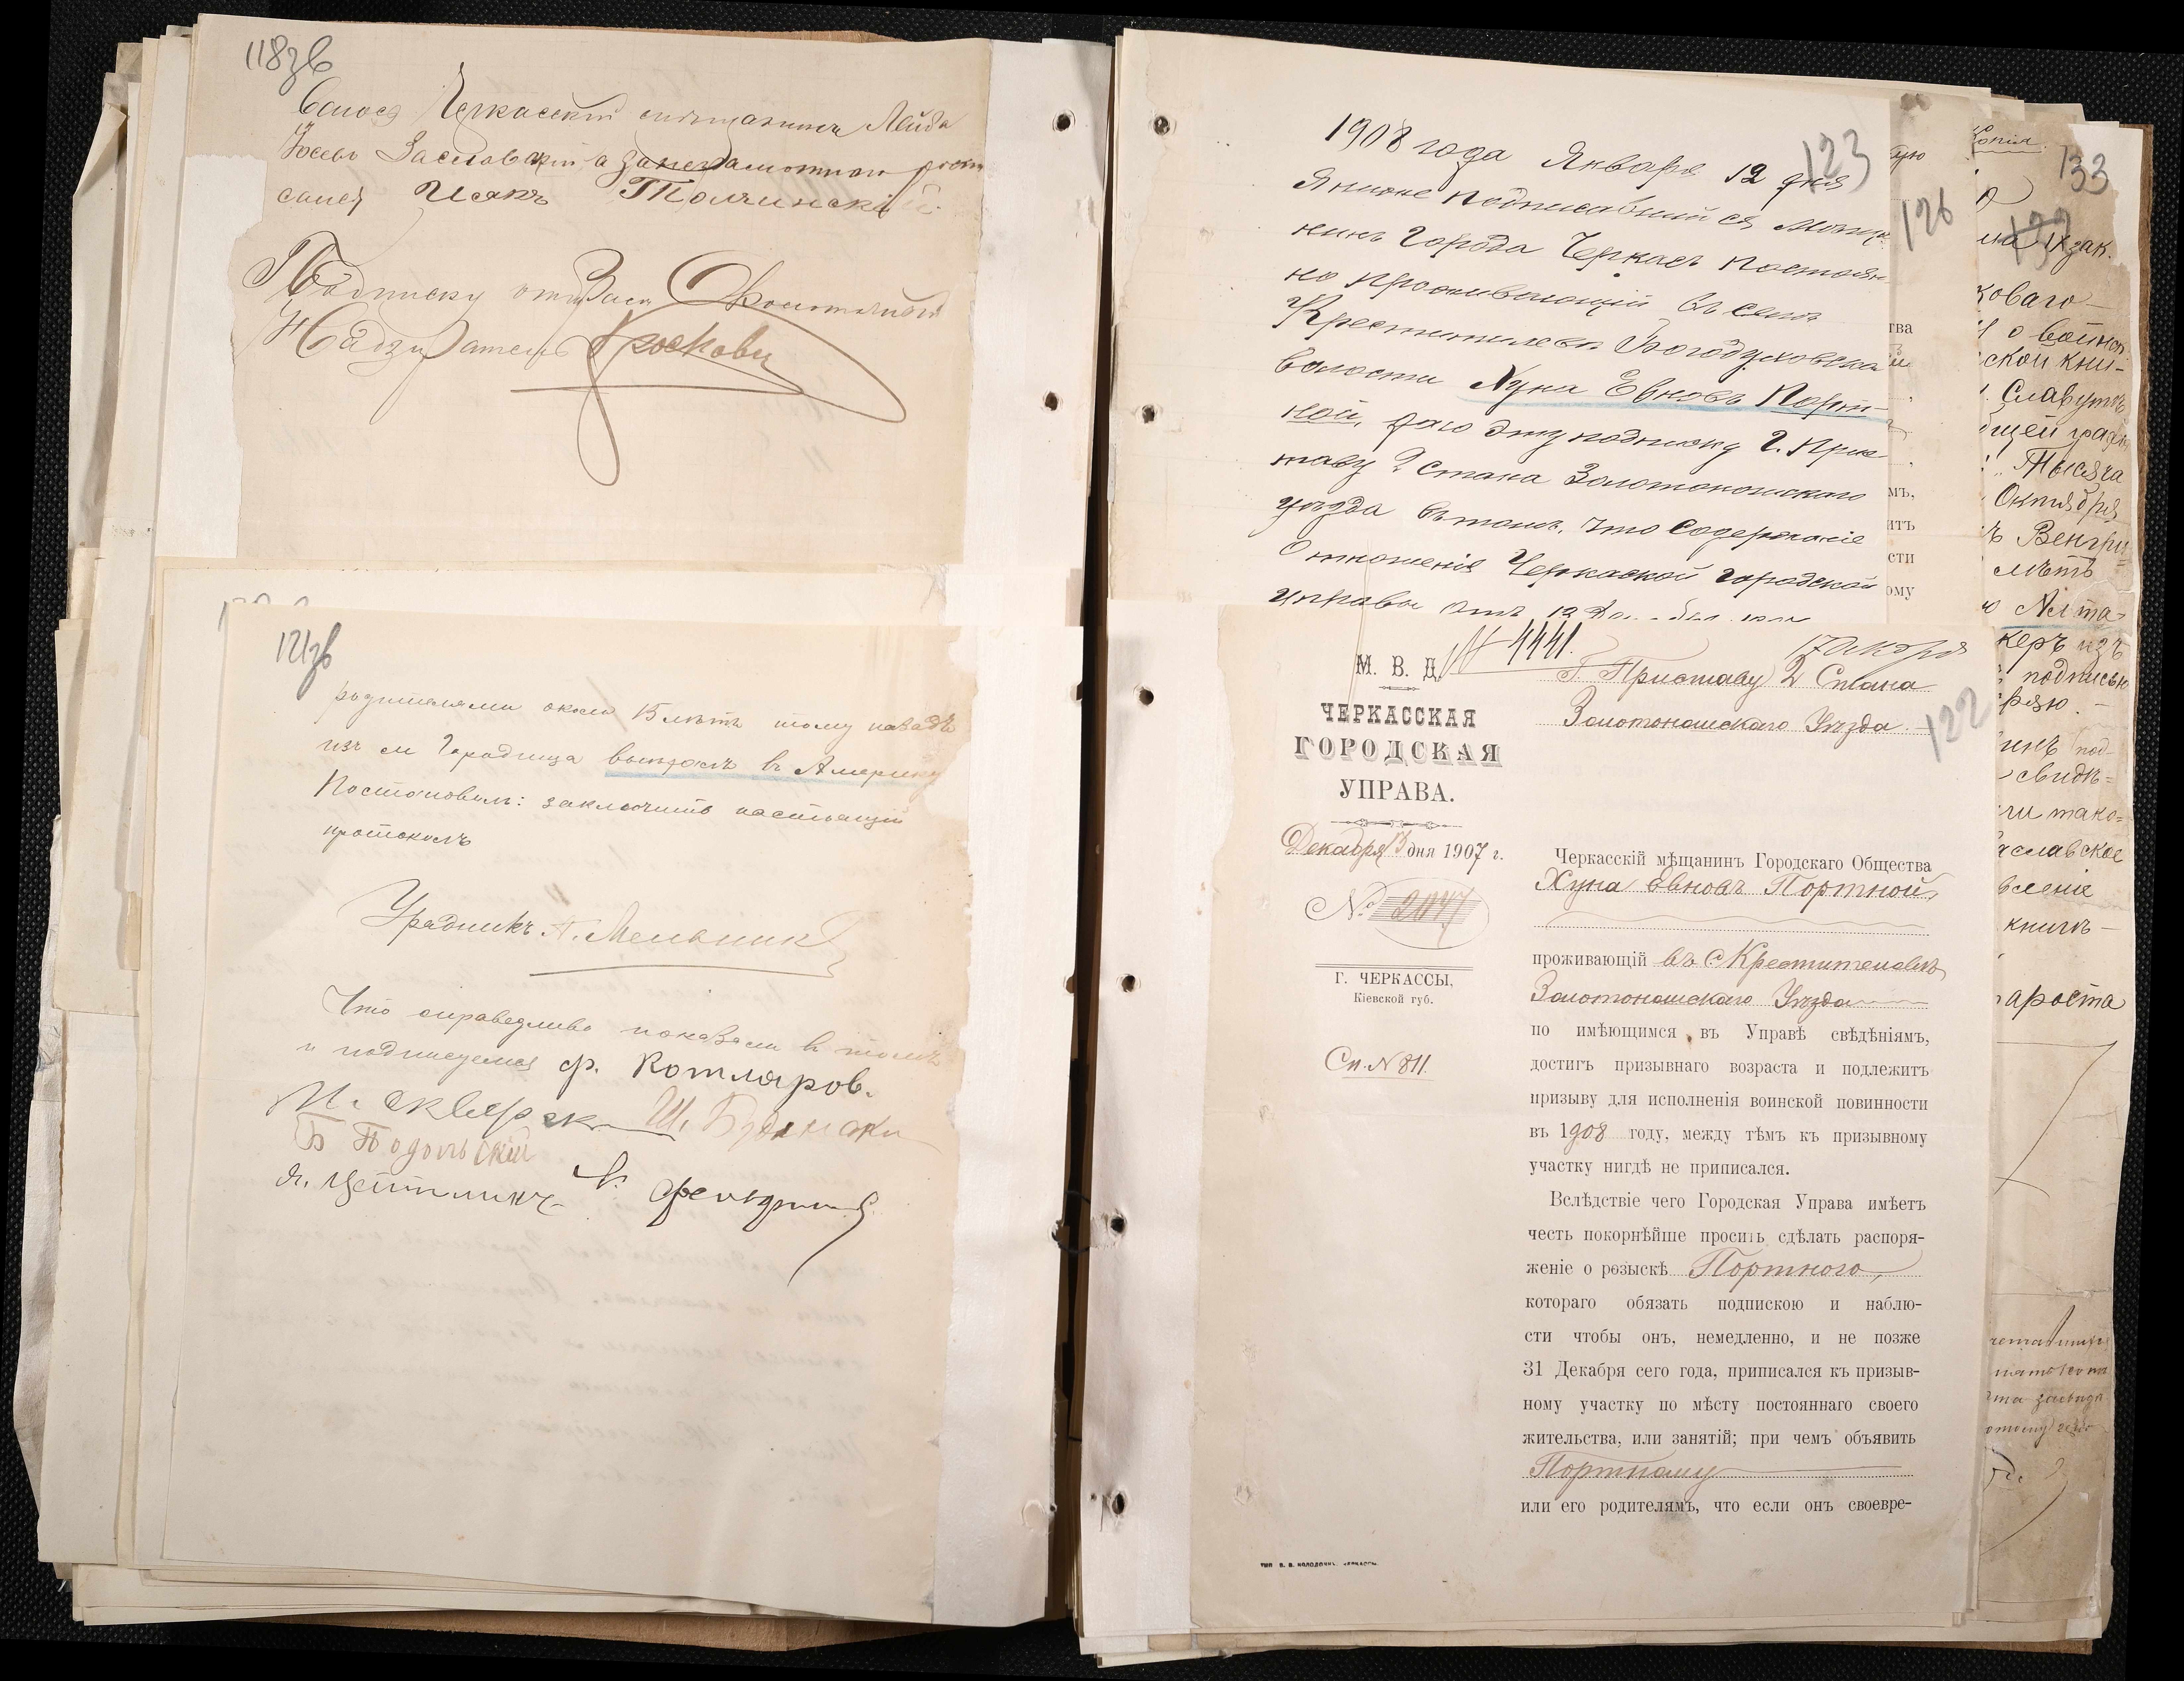 118зв
Черкасскій мѣщанинъ Лейба
Іосевъ Заславскій а за неграмотнаго роспи
сался Исакъ Толчинскій
Подписку отобралъ Околоточный
Надзиратель
121зв
родителями около 15 лѣтъ тому назадъ
изъ м Городища выѣхалъ въ Америку
Постановилъ: заключить настоящій
протоколъ
Урядникъ А. Мельник
Что справедливо показали въ томъ
и подписуемся Ф. Котляров.
Б Подольскій
Я. Цейтлинъ
1908 года Января 12 дня
123
Я ниже подписавшийся Мѣща
нинъ города Черкасъ постоян
но проживающій въ селѣ
Крестителевѣ Богодуховской
волости Хуна Евновъ Порт-
ной, даю эту подписку Г. При
таву 2 Стана Золотоношскаго
уѣзда въ томъ, что содержаніе
Отношенія Черкаской городской
управы отъ
126
тва
мъ,
итъ
сти
ому
Копія
133
зак.
коваго
о воинс
ской кни-
Славутѣ
Тысяча
Октября
Венгри
лѣтъ
керъ изъ
подписью
свидѣ=
ли тако=
славское
вленіе
книгѣ
ароста
М. В. Д.
№ 4441.
17 Декабря
Г. Приставу 2 Стана
Золотоношскаго Уѣзда
122
ЧЕРКАССКАЯ
ГОРОДСКАЯ
УПРАВА.
Декабря 13 дня 1907 г.
№ 2047
Г. ЧЕРКАССЫ,
Кіевской губ.
Сп. № 811.
Черкасскій мѣщанинъ Городскаго Общества
Хуна Евновъ Портной,
проживающій въ с. Крестителевѣ
Золотоношскаго Уѣзда
по имѣющимся въ Управѣ свѣдѣніямъ,
достигъ призывнаго возраста и подлежитъ
призыву для исполненія воинской повинности
въ 1908 году, между тѣмъ къ призывному
участку нигдѣ не приписался.
Вслѣдствіе чего Городская Управа имѣетъ
честь покорнѣйше просить сдѣлать распоря-
женіе о розыскѣ Портного,
котораго обязать подпискою и наблю-
сти чтобы онъ, немедленно, и не позже
31 Декабря сего года, приписался къ призыв-
ному участку по мѣсту постояннаго своего
жительства, или занятій; при чемъ объявить
Портному
или его родителямъ, что если онъ своевре-